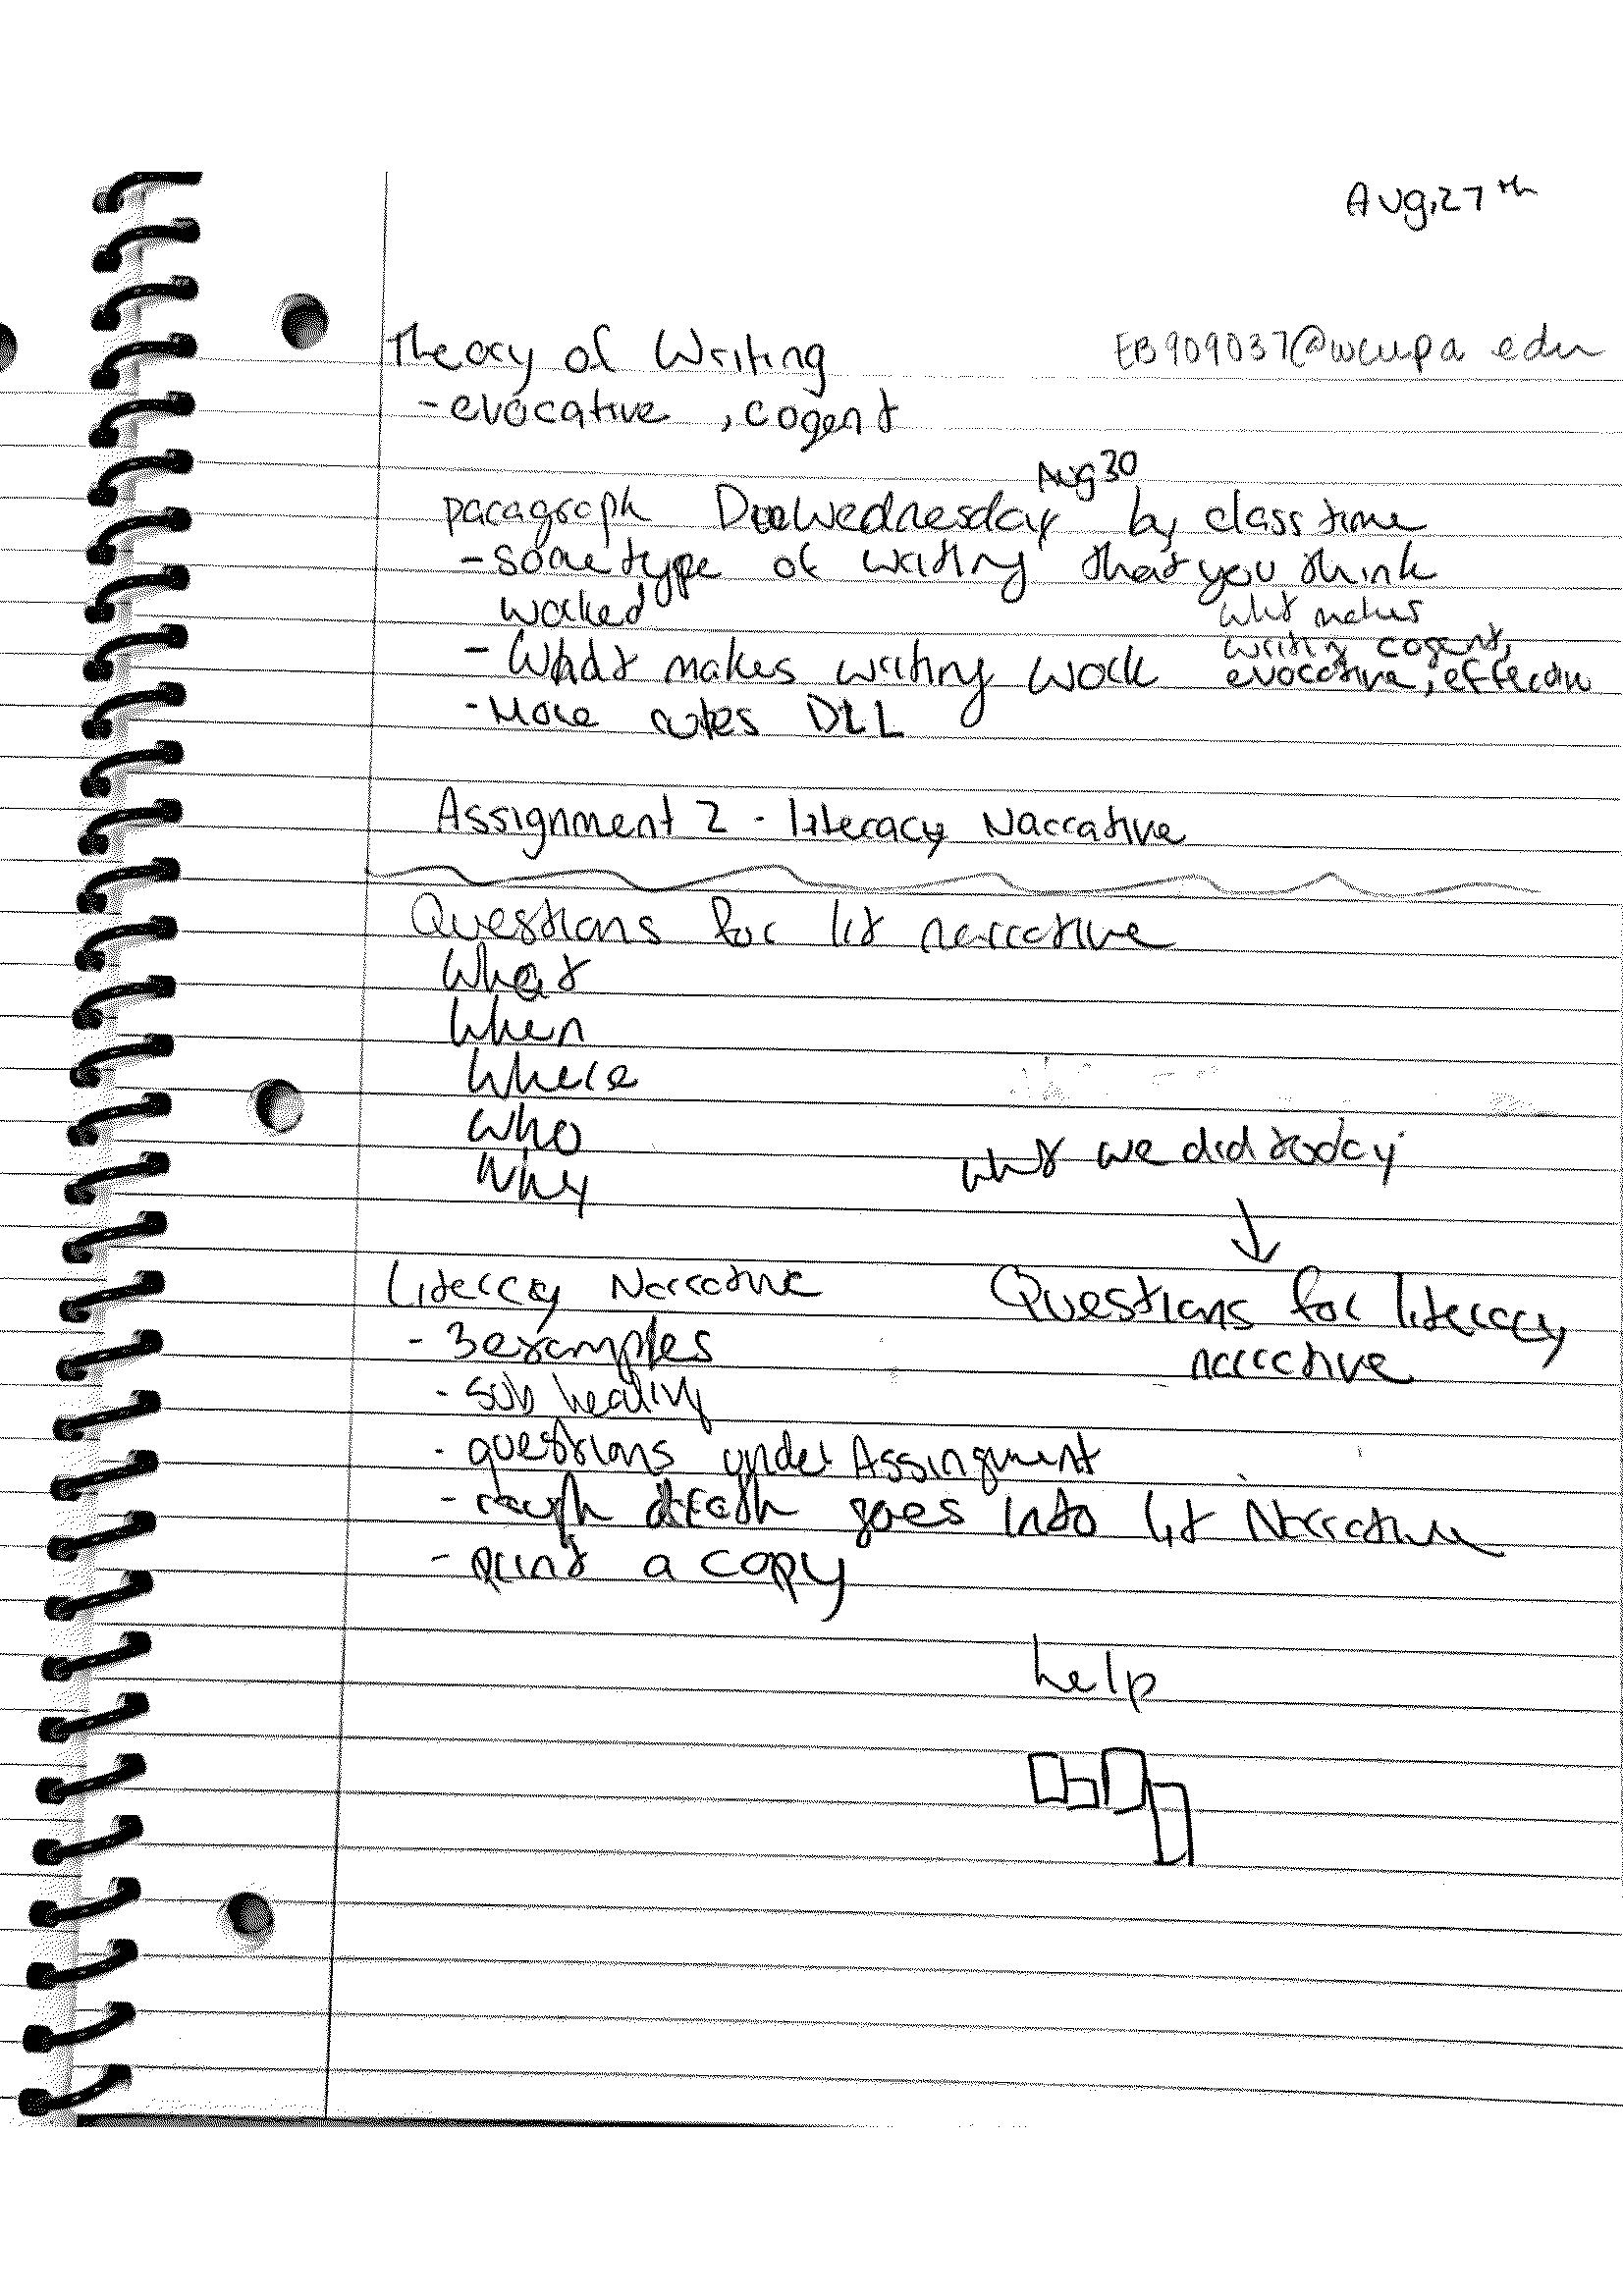 Aug, 27th
Theory of Writing
EB909037@wcupa edu
- evocative , cogent
Aug 30
paragraph Due Wednesday by class time
- some type of writing that you think
worked
what makes
writing cogent,
- What makes writing work
- More notes D2L
Assignment 2 - literacy Narrative
Questions for lit narrative
What
When
Where
Who
Why
what we did today
Questions for literacy
narrative
Literacy Narrative
- 3 examples
- sub heading
- questions under Assingment
- rough goes into lit Narrative
- print a copy
help